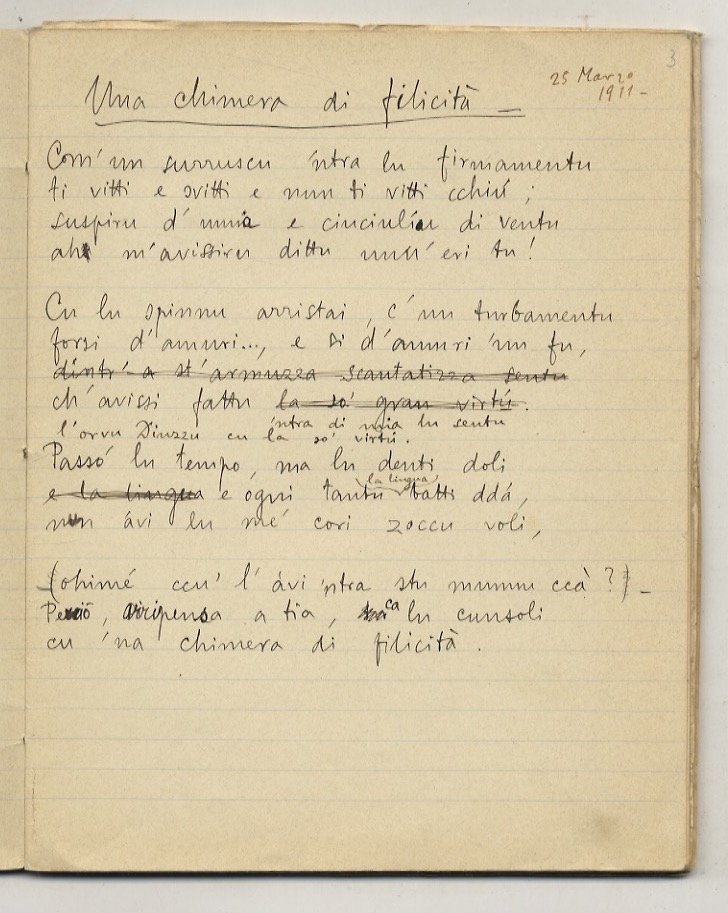 3
25 Marzo
1911-
Una chimera di filicità –
Com'un surruscu 'ntra lu firmamentu
ti vitti e svitti e nun ti vitti cchiú ;
suspiru d'umma e ciuciulíu di ventu
ah m'avissiru dittu unn'eri tu !
Cu lu spinnu arristai, c'un turbamentu
forsi d'amuri..., e si d'amuri 'un fu,
dintr'a st'armuzza scantatizza sentu
ch'avissi fattu la so' gran virtú.
'ntra di mia lu sentu
l'orvu Diuzzu cu la so' virtú.
Passó lu tempo, ma lu denti doli
la lingua
e la lingua e ogni tantu batti ddá,
nun ávi lu mé cori zoccu voli,
(ohimé ccu' l'ávi 'ntra stu munnu ccà ?) –
Perciò, ripensa a tia, ca lu cunsoli
cu 'na chimera di filicità .